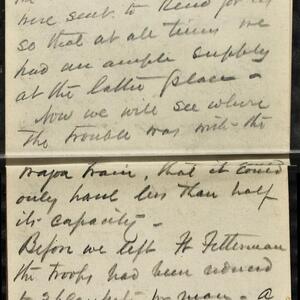 were sent to Reno for us
so that at all times we
had an ample supply
at the latter place -
Now we will see where
the trouble was with the
wagon train, that it could
only haul less than half
its capacity -
Before we left Ft Fetterman
the troops had been reduced
to 2 blankets per man - A